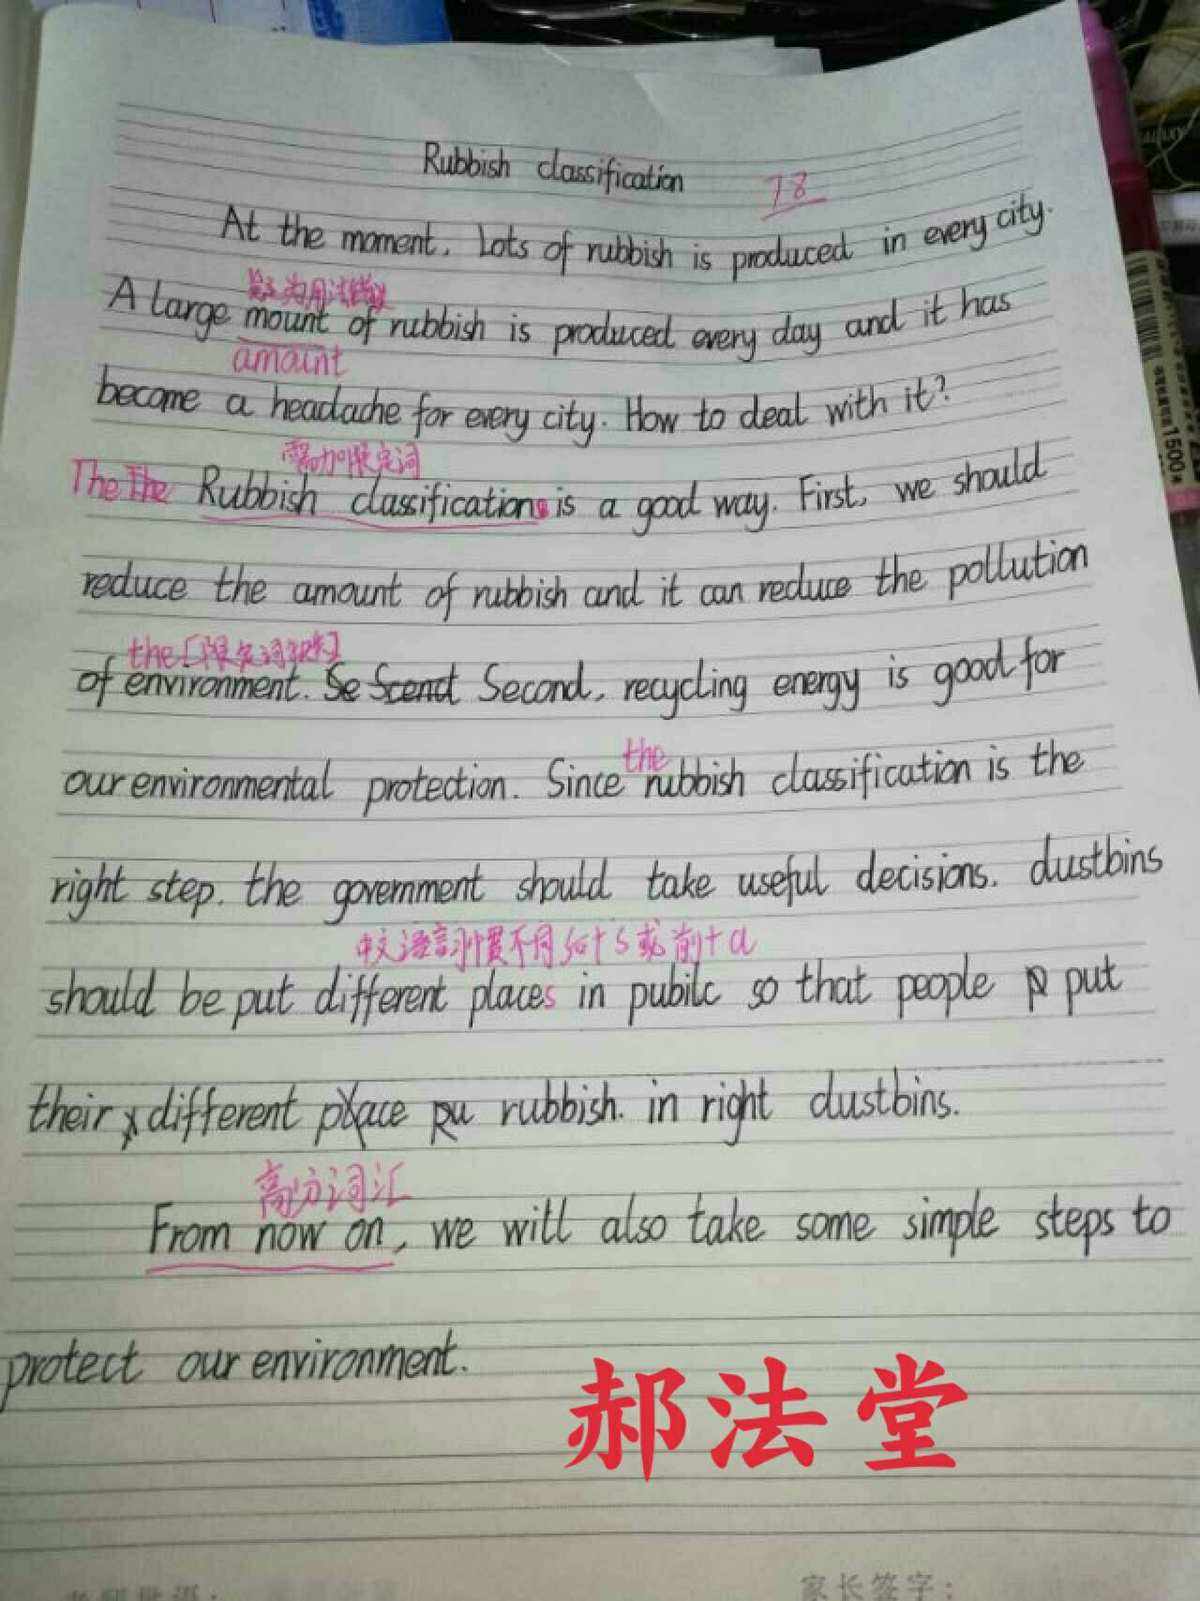 Rubbish classification 78
At the moment. Lots of rubbish is produced in every city.
疑为用法错误
A large mount of rubbish is produced every day and it has
amount
become a headache for every city. How to deal with it?
需加限定词
The The Rubbish classifications is a good way. First, we should
reduce the amount of rubbish and it can reduce the pollution
the [限定词缺失]
of environment. Se Scend Second, recycling energy is good for
the
our environmental protection. Since rubbish classification is the
right step. the government should take useful decisions. dustbins
中文语言习惯不同 后+s或前+a
should be put different places in pubilc so that people p put
their different place Ru rubbish. in right dustbins.
高分词汇
From now on, we will also take some simple steps to
protect our environment.
郝法堂
家长签字:
1500